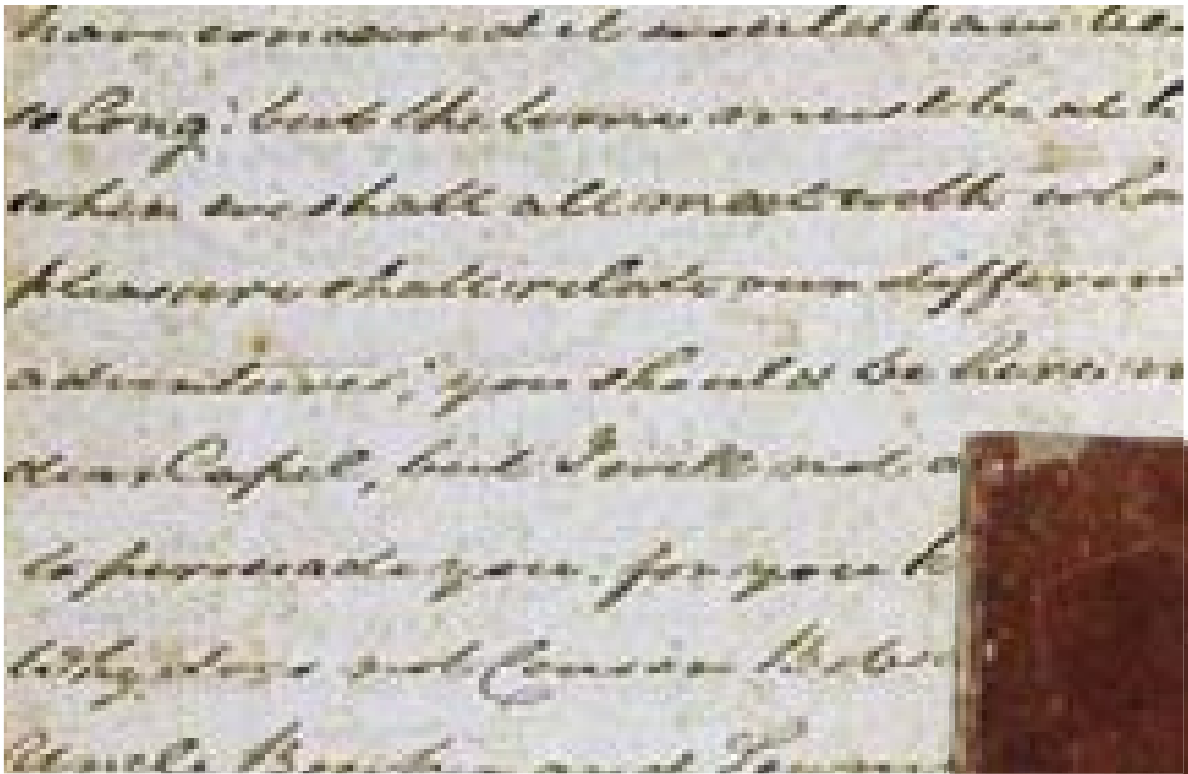 have
so long; but the time must be at h
when we shall all meet with who
pleasure shall relate our differen
adventures; you should be here
dear Capel, but I will not a
to persuade you. for you k
why does not Cousin
Uncle and